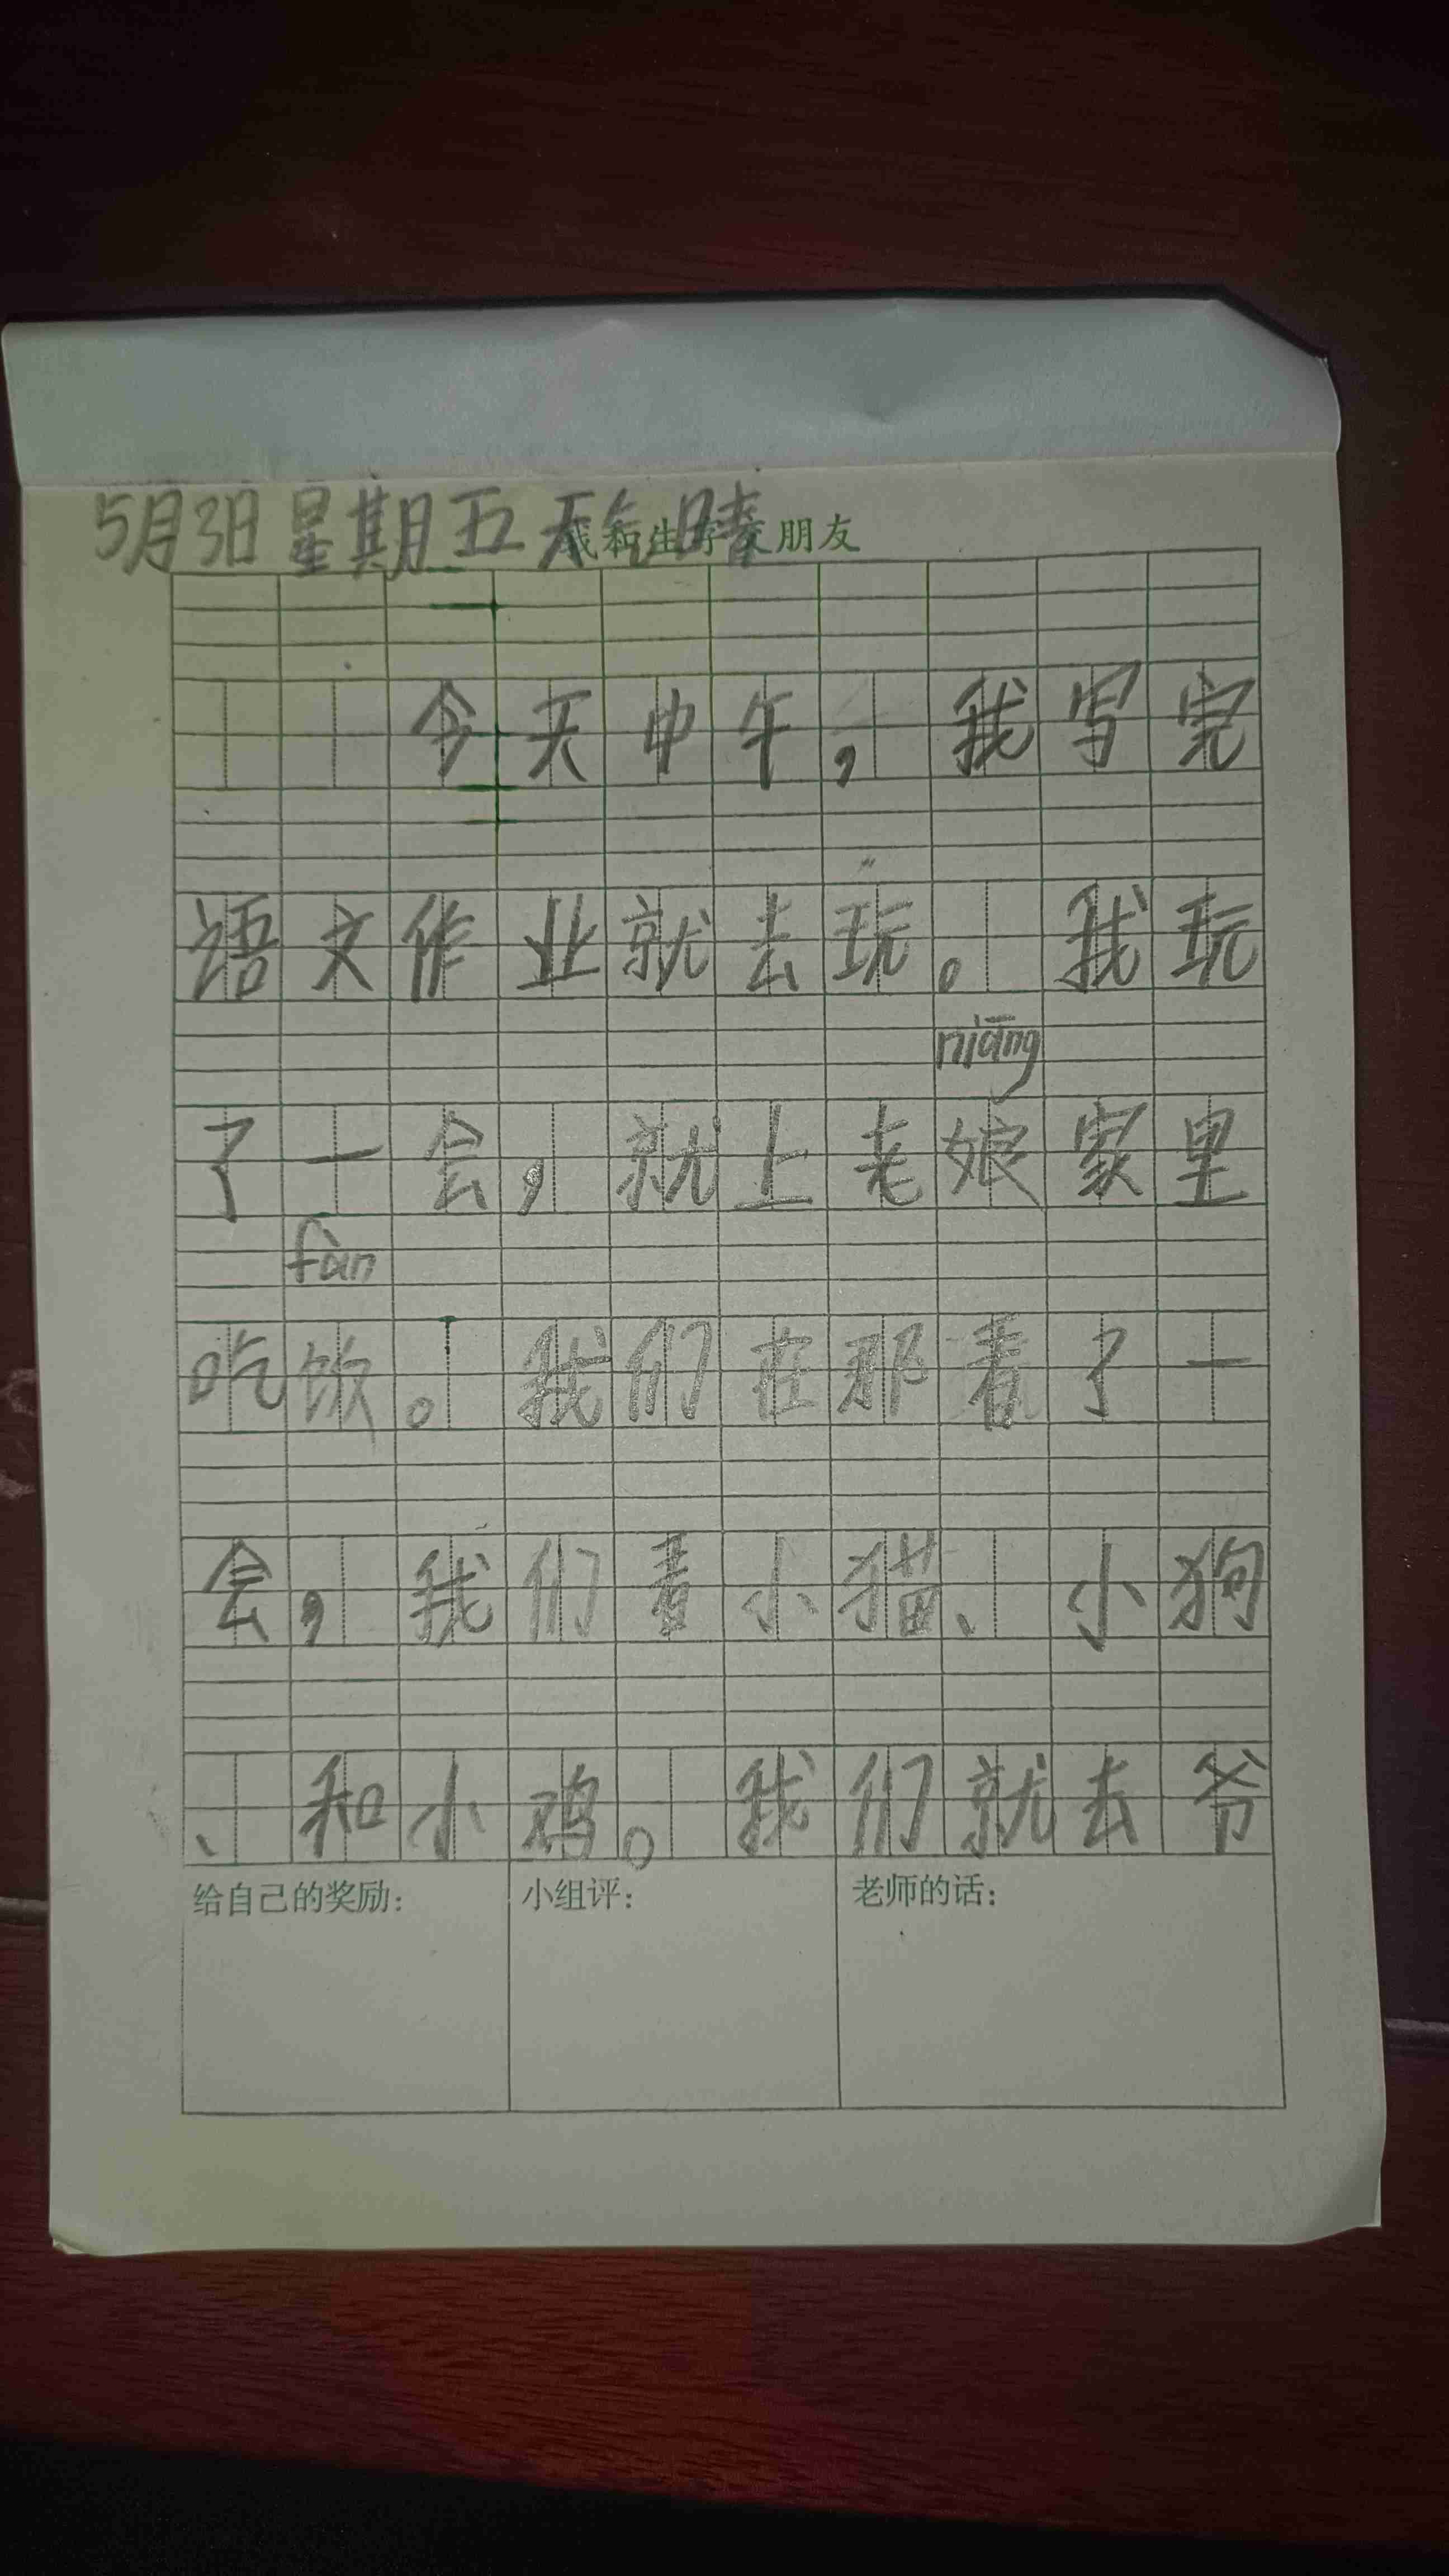 5月3日 星期五 天气晴
我和生字交朋友
今天中午，我写完
语文作业就去玩。我玩
niáng
了一会，就上老娘家里
fàn
吃饭。我们在那看了一
会，我们看小猫、小狗
、和小鸡。我们就去爷
给自己的奖励： 小组评： 老师的话：